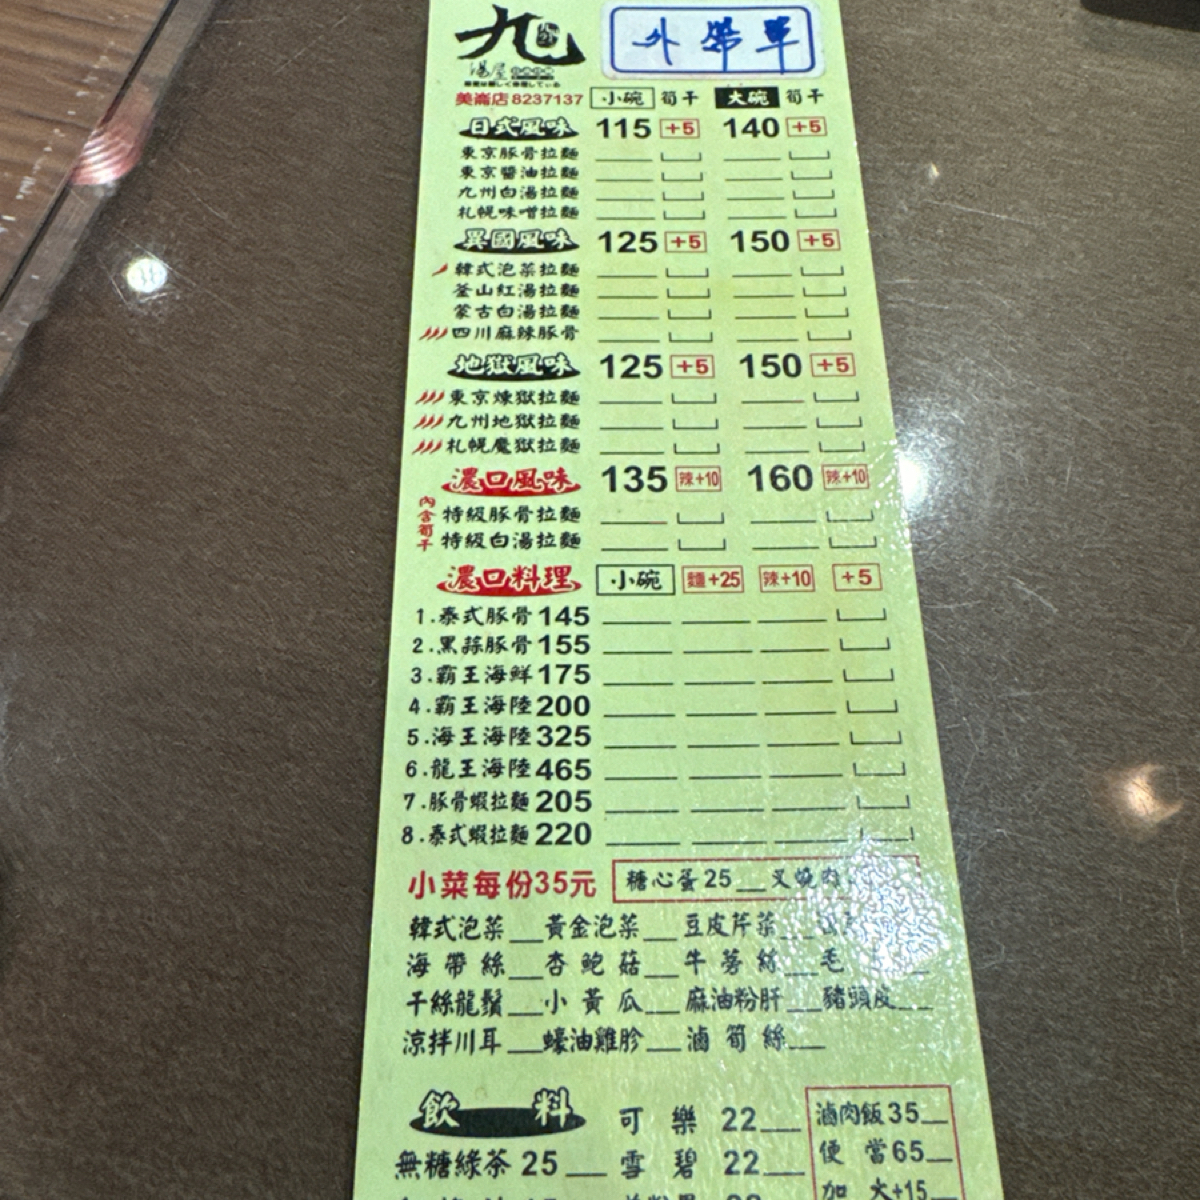 九
湯屋
外帶單
美崙店8237137 小碗 筍干 大碗 筍干
日式風味 115 +5 140 +5
東京豚骨拉麵
東京醬油拉麵
九州白湯拉麵
札幌味噌拉麵
異國風味 125 +5 150 +5
韓式泡菜拉麵
釜山紅湯拉麵
蒙古白湯拉麵
四川麻辣豚骨
地獄風味 125 +5 150 +5
東京煉獄拉麵
九州地獄拉麵
札幌魔獄拉麵
濃口風味 135 辣+10 160 辣+10
內含筍干
特級豚骨拉麵
特級白湯拉麵
濃口料理 小碗 麵+25 辣+10 +5
1.泰式豚骨145
2.黑蒜豚骨155
3.霸王海鮮175
4.霸王海陸200
5.海王海陸325
6.龍王海陸465
7.豚骨蝦拉麵205
8.泰式蝦拉麵220
小菜每份35元 糖心蛋25__叉燒肉
韓式泡菜__黃金泡菜__豆皮芹菜__
海帶絲__杏鮑菇__牛蒡絲__毛
干絲龍鬚__小黃瓜__麻油粉肝__豬頭皮__
涼拌川耳__蠔油雞胗__滷筍絲__
飲料 可樂 22__ 滷肉飯35__
無糖綠茶 25__ 雪碧 22__ 便當65__
加大+15__